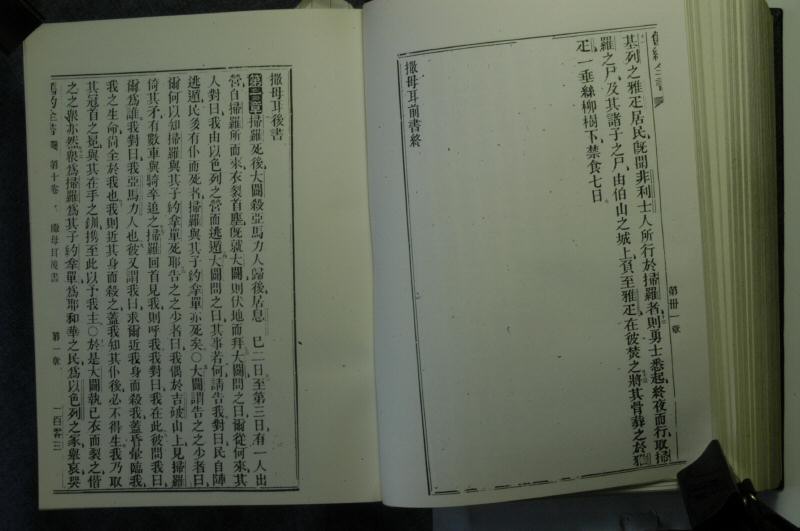 基列之雅疋居民旣聞非利士人所行於掃羅者則勇士悉起終夜而行取掃
羅之尸及其諸子之尸由伯山之城上負至雅疋在彼焚之將其骨葬之於
疋一垂絲柳樹下禁食七日
撒母耳前書終
第卅一章
撒母耳後書
第一章掃羅死後大闢殺亞馬力人歸後居息 已二日至第三日有一人出
營自掃羅所而來衣裂首塵旣就大闢則伏地而拜大闢問之曰爾從何來其
人對曰我由以色列之營而逃遁大闢問之曰其事若何請告我對曰民自陣
逃遁民多有仆而死者掃羅與其子約拿單亦死矣○大闢謂告之之少者曰
爾何以知掃羅與其子約拿單死耶告之之少者曰我偶於吉破山上見掃羅
倚其矛有數車與騎卒追之掃羅回首見我則呼我我對曰我在此彼問我曰
爾爲誰我對曰我亞馬力人也彼又謂我曰求爾近我身而殺我蓋昏暈臨我
我之生命尙全於我也我則近其身而殺之蓋我知其仆後必不得生我乃取
其冠首之冕與其在手之釧携至此以予我主○於是大闢執已衣而裂之偕
之之衆亦然衆爲掃羅爲其子約拿單爲耶和華之民爲以色列之家舉哀哭
舊約全書 第十卷 撒母耳後書 第一章 一百零三